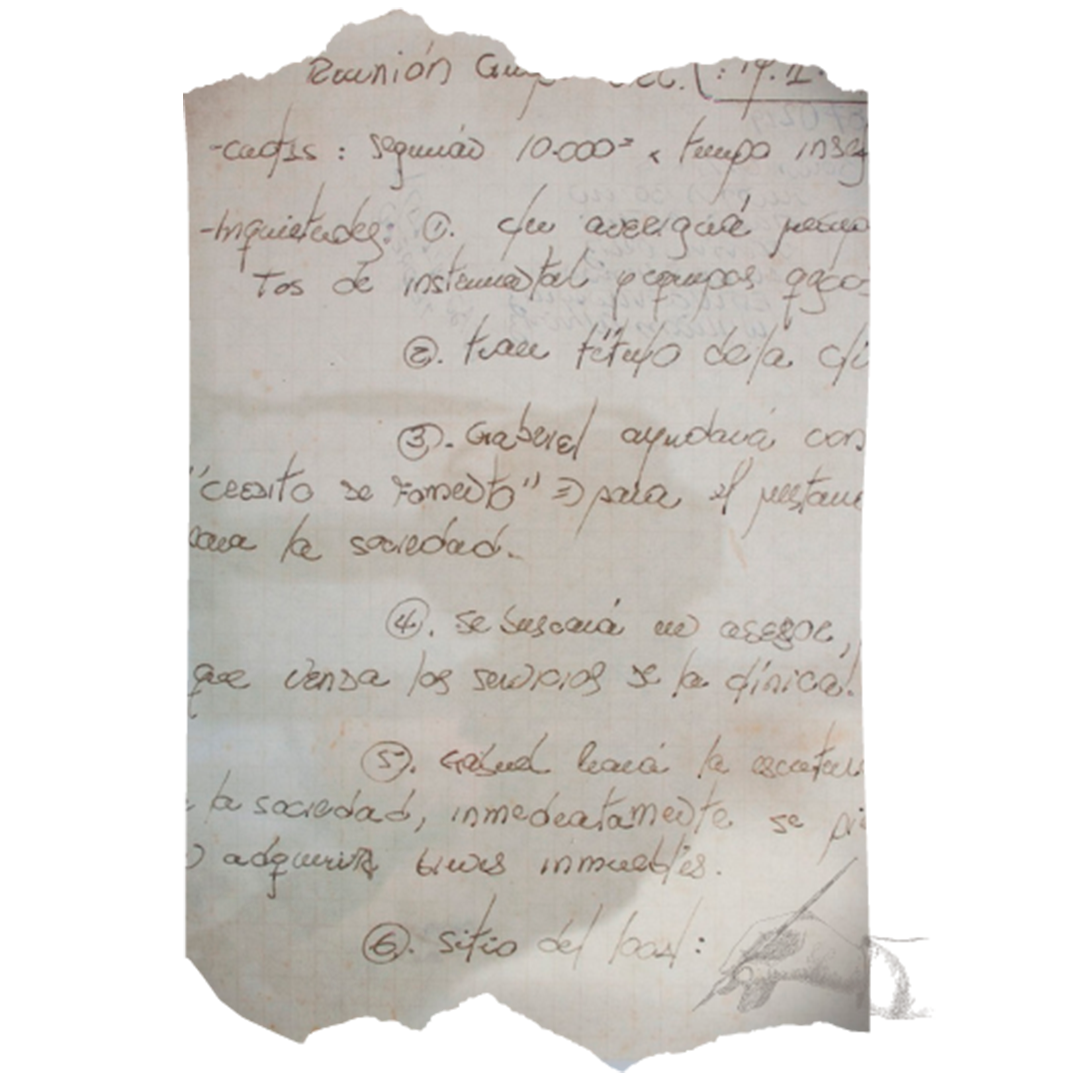 Reunión
-cuotas: seguirán 10.000= x tiempo
-Inquietudes: ①. averiguará
tos de instrumental y equipos
②. traer título de la
③. Gabriel ayudará con
"credito de Fomento" => para el
para la sociedad.
④. Se buscará un asesor,
que venda los servicios de la clínica!
⑤. Gabriel hará la
la sociedad, inmediatamente se
adquirir bienes inmuebles.
⑥. sitio del local: